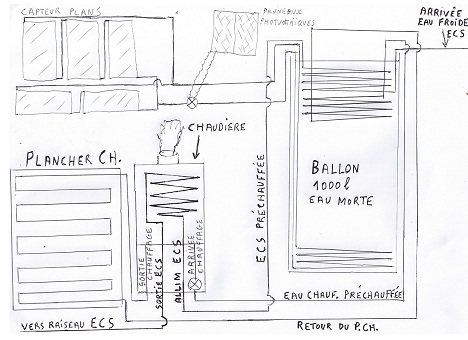 CAPTEUR PLANS
PANNEAUX
PHOTOVOLTAÏQUES
ARRIVÉE
EAU FROIDE
ECS
CHAUDIÈRE
PLANCHER CH.
BALLON
1000l
EAU MORTE
ECS PRÉCHAUFFÉE
SORTIE
CHAUFFAGE
SORTIE ECS
ALLIM ECS
ARRIVÉE
CHAUFFAGE
EAU CHAUF. PRÉCHAUFFÉE
VERS RAISEAU ECS
RETOUR DU P.CH.